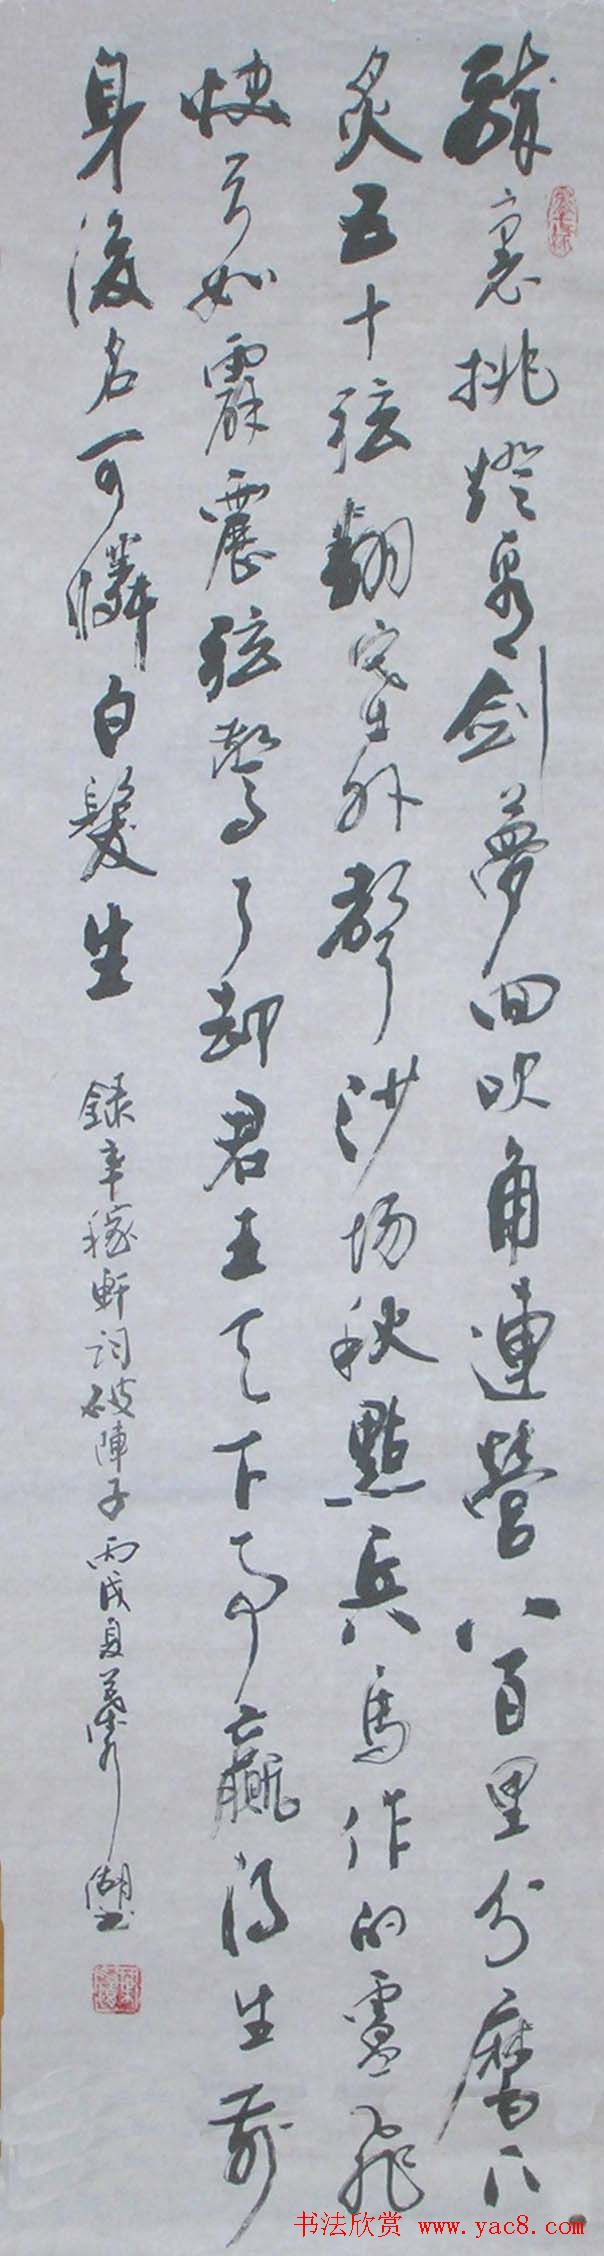 醉裏挑燈看劍夢回吹角連營八百里分麾下
炙五十弦翻塞外聲沙場秋點兵馬作的盧飛
快弓如霹靂弦驚了却君王天下事贏得生前
身後名可憐白髮生
錄辛稼軒詞破陣子丙戌夏
书法欣赏 www.yac8.com